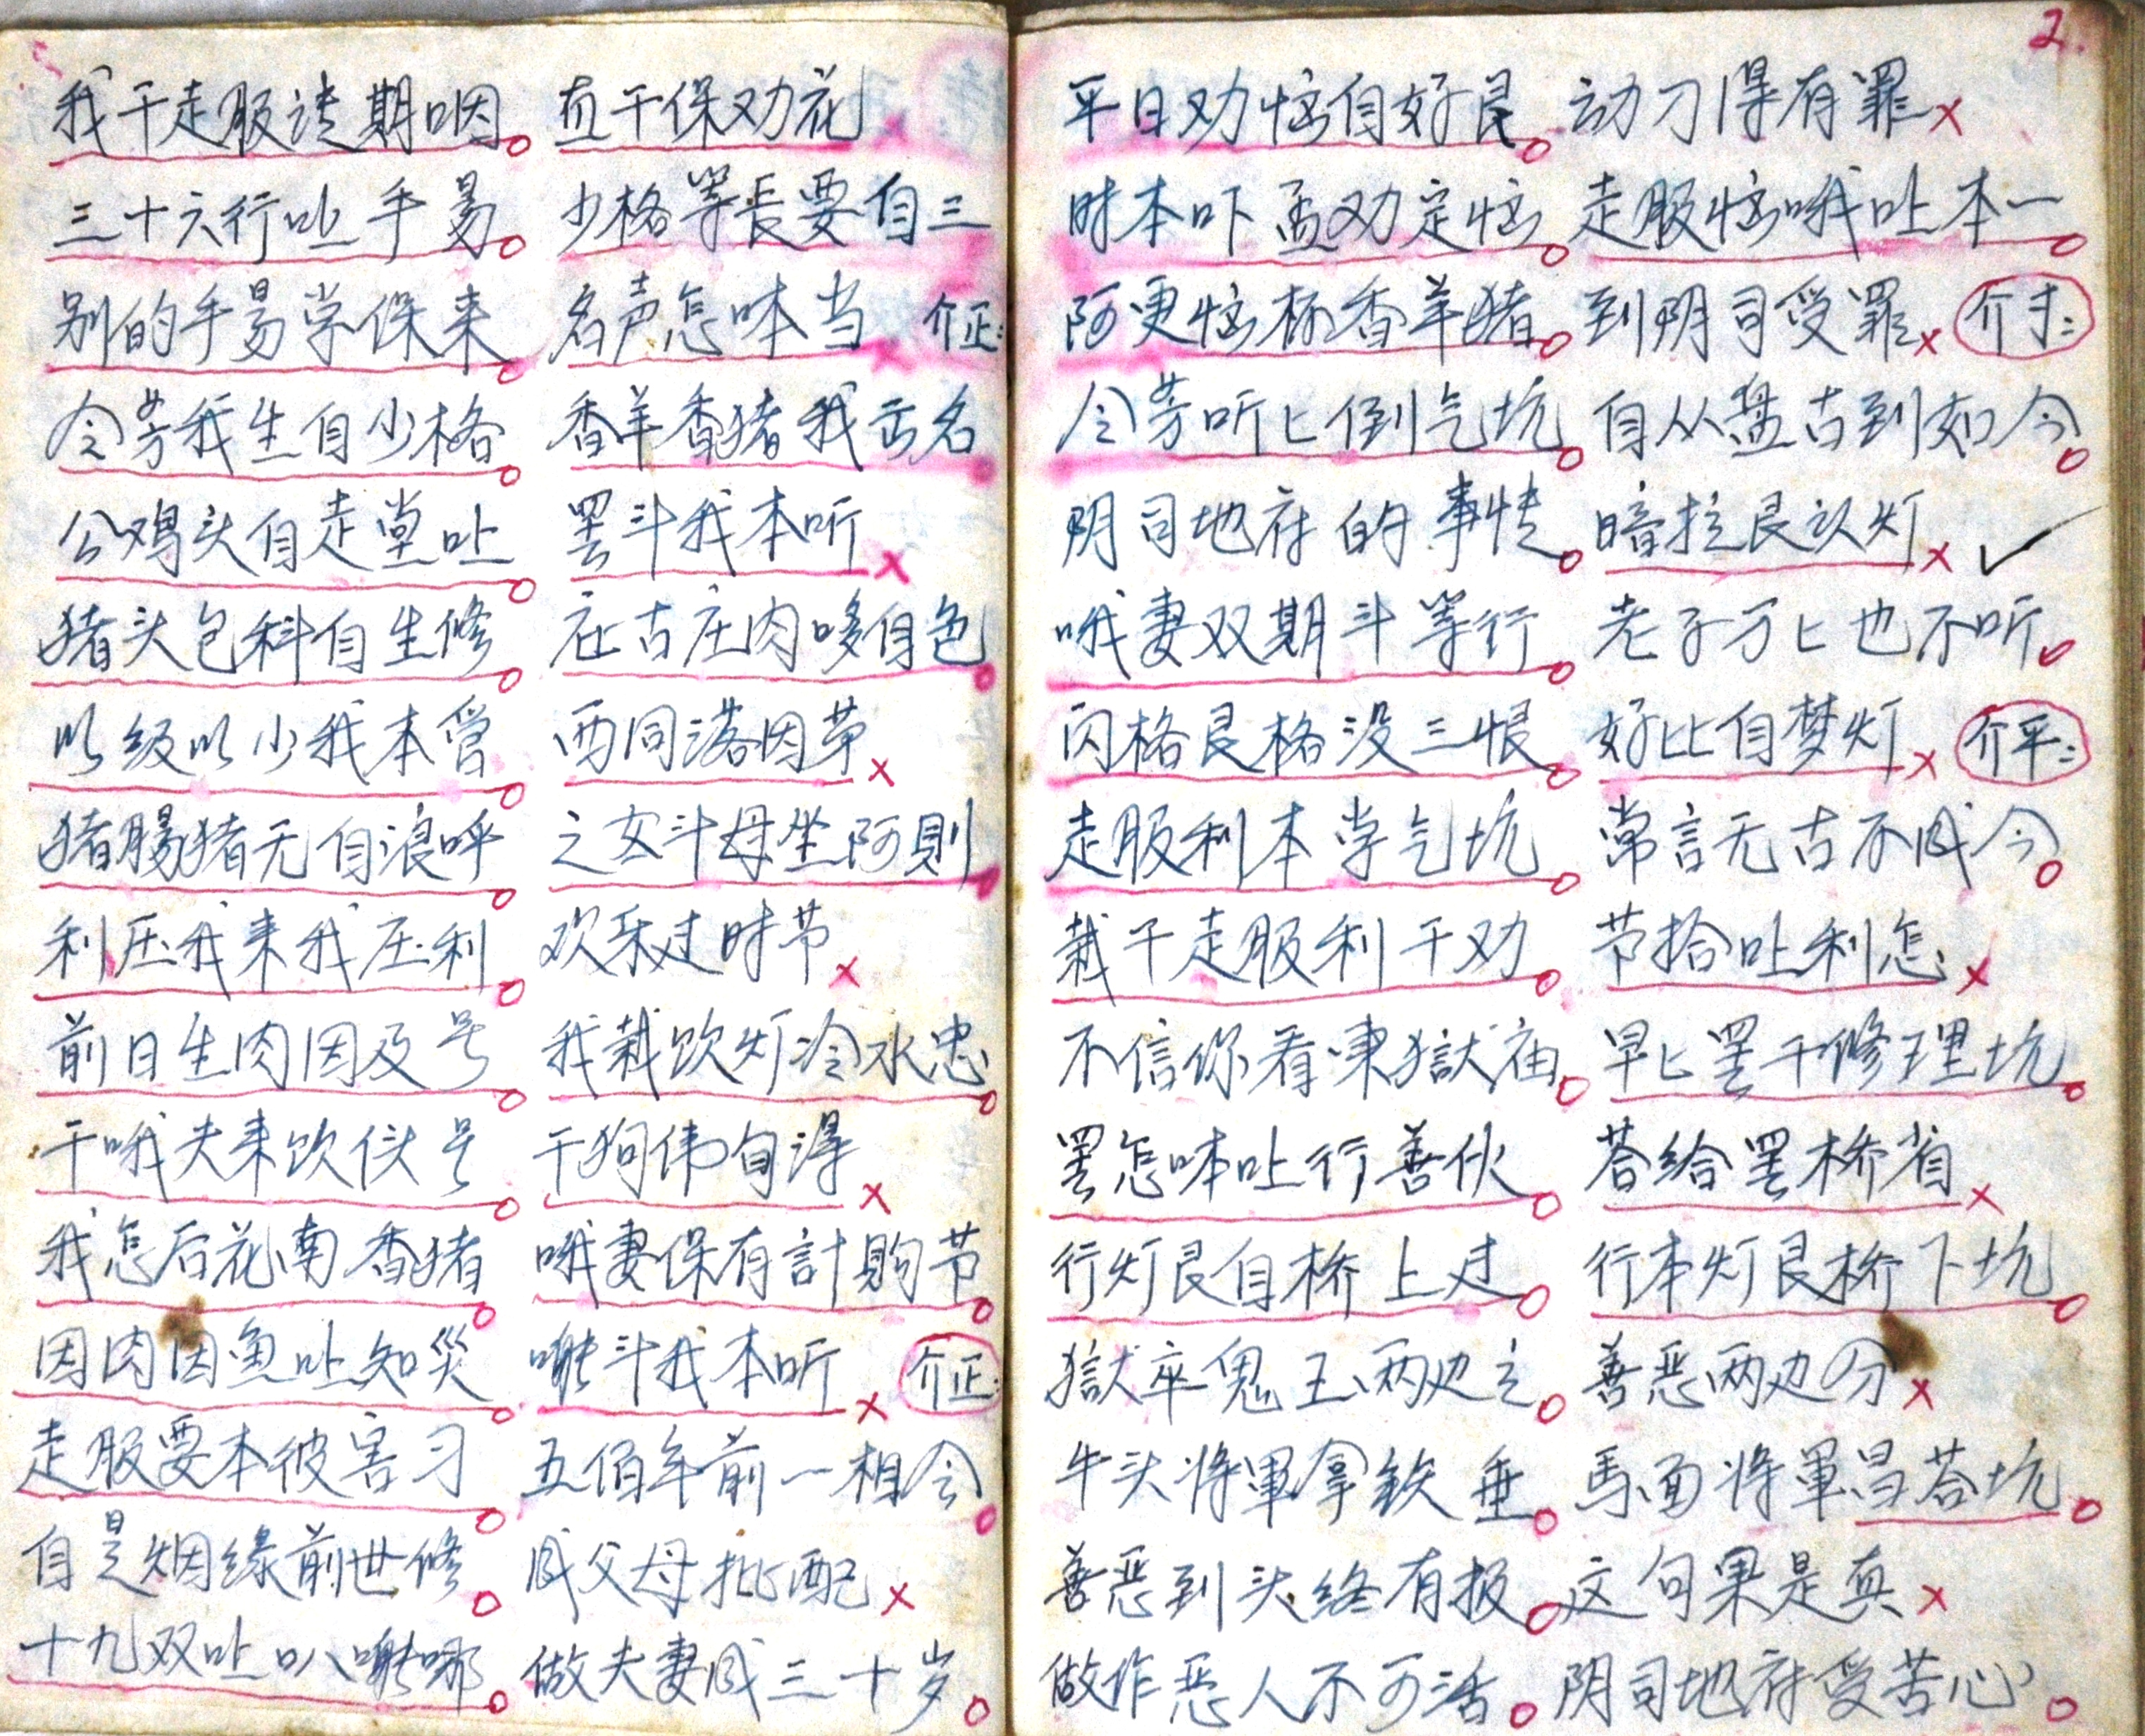 我干走服读期咽。直干保劝花×
三十六行吐手易。少格等長要自三
别的手易学保来。名声怎吥当× 介正:
令芳我生自少格。香羊香猪我古名。
公鸡头自走堂吐。罢斗我本听×
猪头包科自生修。在古庄肉哆自色。
以级以少我本管。西同落因节×
猪腸猪无自浪呼。之女斗母坐阿則。
利压我来我压利。欢乐过时节×
前日生肉因及号。我栽饮灯冷水忠。
干哦夫来饮伙号。干狗伟自得×
我怎后花南香猪。哦妻保有計购节。
因肉因魚吐知災。 斗我本听× 介正:
走服要本彼害习。五佰年前一相会。
自是烟缘前世修。成父母批配×
十九双吐叭 哪。做夫妻成三十岁。
2.
平日劝恼自好良。动刀得有罪×
时本吓孟劝定恼。走服恼哦吐本一。
阿更恼标香羊猪。到阴司受罪× 介才:
令芳听匕倒气坑。自从盘古到如今。
阴司地府的事情。暗拉良认灯× ✓
哦妻双期斗等行。老子万匕也不听。
闪格良格没三恨。好比自梦灯× 介平:
走服利本学气坑。常言无古不成今。
栽干走服利干劝。节拾吐利怎×
不信你看東獄庙。早匕罢干修理坑。
罢怎吥吐行善伙。荅给罢桥省×
行灯良自桥上过。行本灯良桥下坑。
獄卒鬼王两边立。善恶两边分×
牛头将軍拿鉄垂。馬面将軍昌荅坑。
善恶到头终有报。这句果是真×
做作恶人不可活。阴司地府受苦心。